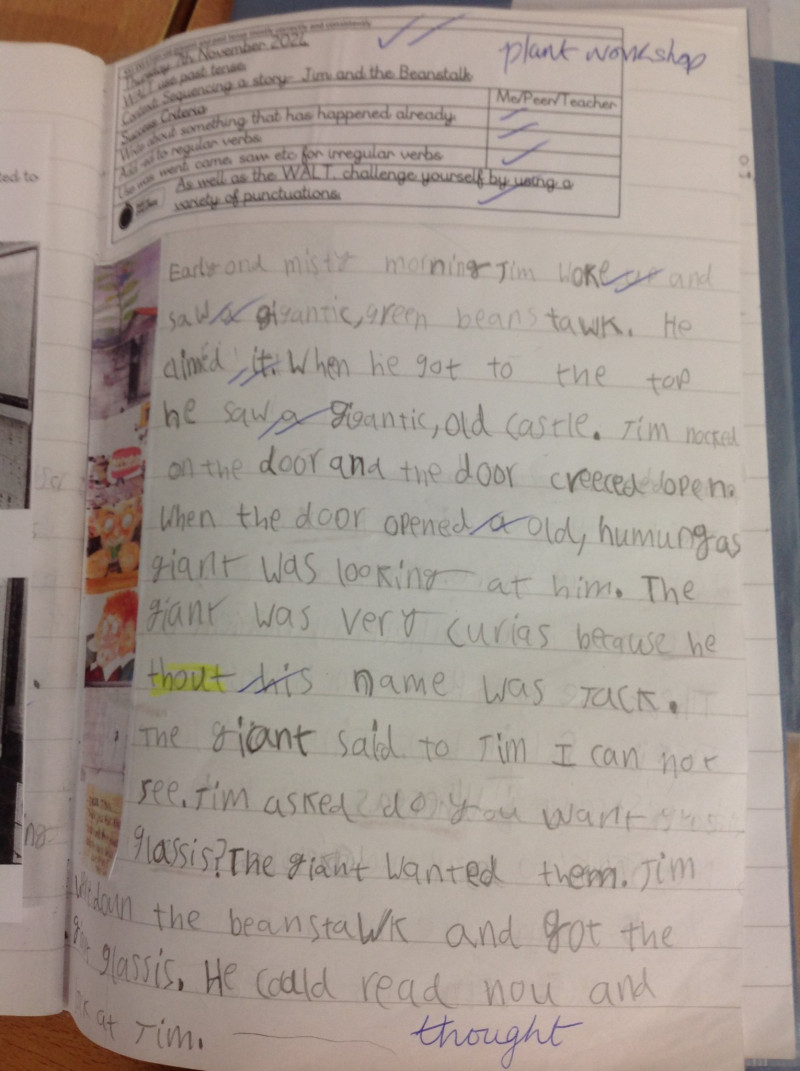 plant workshop
Thursday 7th November 2024
WALT use past tense
Context Sequencing a story- Jim and the Beanstalk
Success Criteria
Me/Peer/Teacher
Write about something that has happened already.
Add -ed to regular verbs
Use was, went, came, saw etc for irregular verbs
As well as the WALT, challenge yourself by using a
variety of punctuations.
ted to
Early ond misty morning Jim woke and
saw a gigantic, green beanstawk. He
climed it. When he got to the top
he saw a gigantic, old castle. Jim nocked
on the door and the door creeced open.
When the door opened a old, humungas
giant was looking at him. The
giant was very curias because he
thout his name was Jack.
The giant said to Jim I can not
see. Jim asked do you want
glassis? The giant wanted them. Jim
doun the beanstawk and got the
glassis. He could read nou and
at Jim.
thought